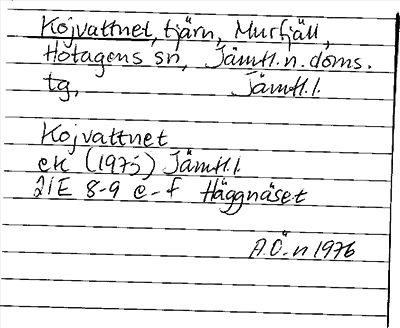 Kojvattnet, tjärn, Murfjäll,
Hotagens sn, Jämtl. n. doms.
tg, Jämtl. l.
Kojvattnet
ek (1975) Jämtl. l.
21E 8-9 e-f Häggnäset
A.Ö-n 1976